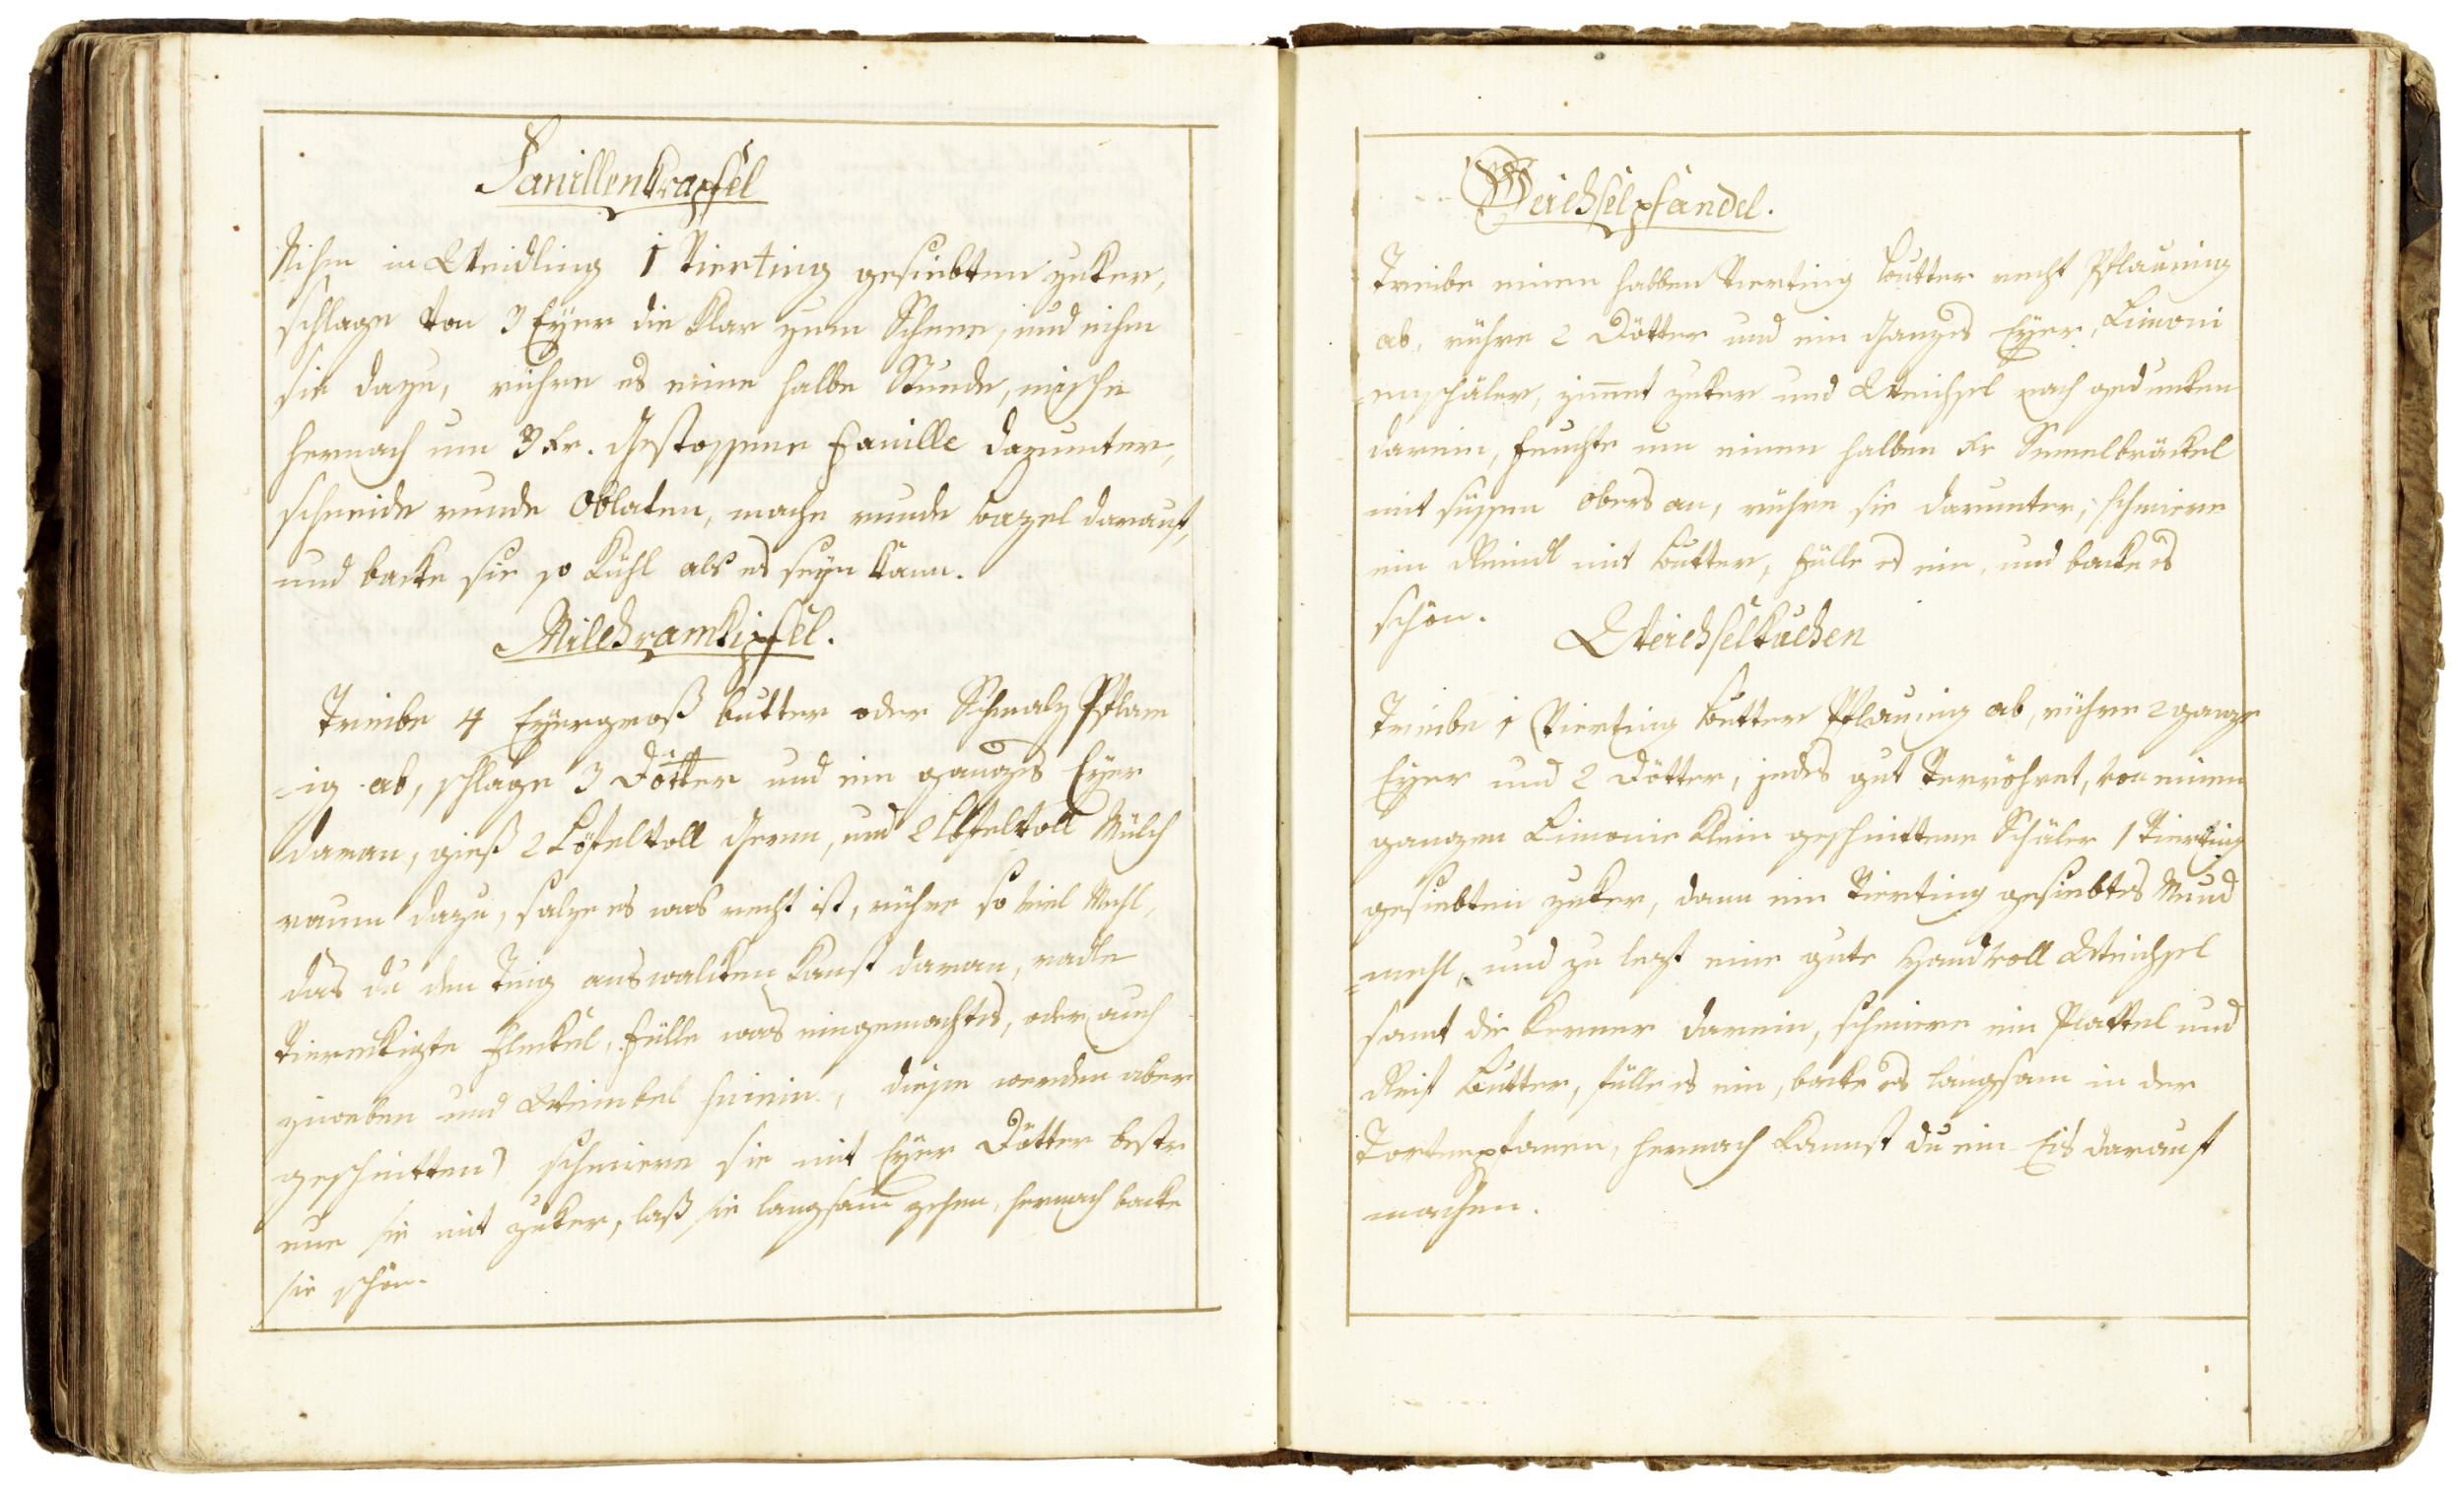 Fanillenkrapfel
Nihm in Weidling 1 Vierting gesiebten zuker,
schlage von 3 Eÿer die klar zum Schnee, und nihm
sie dazu, rühre es eine halbe Stunde, mische
hernach um 3 Kr. Gestossene Fanille darunter,
schneide runde Oblaten, mache runde bazel darauf,
und backe sie so kühl als es seÿn kann.
Milchramkipfel.
Treibe 4 Eÿergroß butter oder Schmalz Pflam
-ig ab, schlage 3 Dötter und ein ganzes Eÿer
daran, gieß 2 Löfelvoll Germ, und 2 Löfelvoll Milch
raum dazu, salze es was recht ist, rühre so viel Mehl,
das du den Teig auswalcken kanst daran, radle
viereckigte Fleckel, fülle was eingemachtes, oder auch
zweben und Weinbel hinein, diese werden aber
geschnitten) schmiere sie mit Eÿer Dötter bestr
eue sie mit zuker, laß sie langsam gehen, hernach backe
sie schön.
Weichselpfandel.
Treibe einen halben Vierting butter recht Pflaumig
ab, rühre 2 Dötter und ein Ganzes Eÿer, Limoni
enschäler, zimmet zuker und Weichsel nach gedunken
darein, feuchte um einen halben Kr Semelbröckel
mit süssen obers an, rühre sie darunter, schmiere
ein Reindl mit butter, fülle es ein, und backe es
schön.
Weichselkuchen
Treibe 1 Vierting butter Pflaumig ab, rühre 2 ganze
Eÿer und 2 Dötter, jedes gut verröhret, von einem
ganzen Limonie klein geschnittene Schäler 1 Vierting
gesiebten zuker, dann ein Vierting gesiebtes Mund
=mehl, und zu lezt eine gute Handvoll Weichsel
samt die kerner darein, schmiere ein Plattel und
Reif Butter, fülle es ein, backe es langsam in der
Tortenpfanen, hernach kannst du ein Eis darauf
machen.